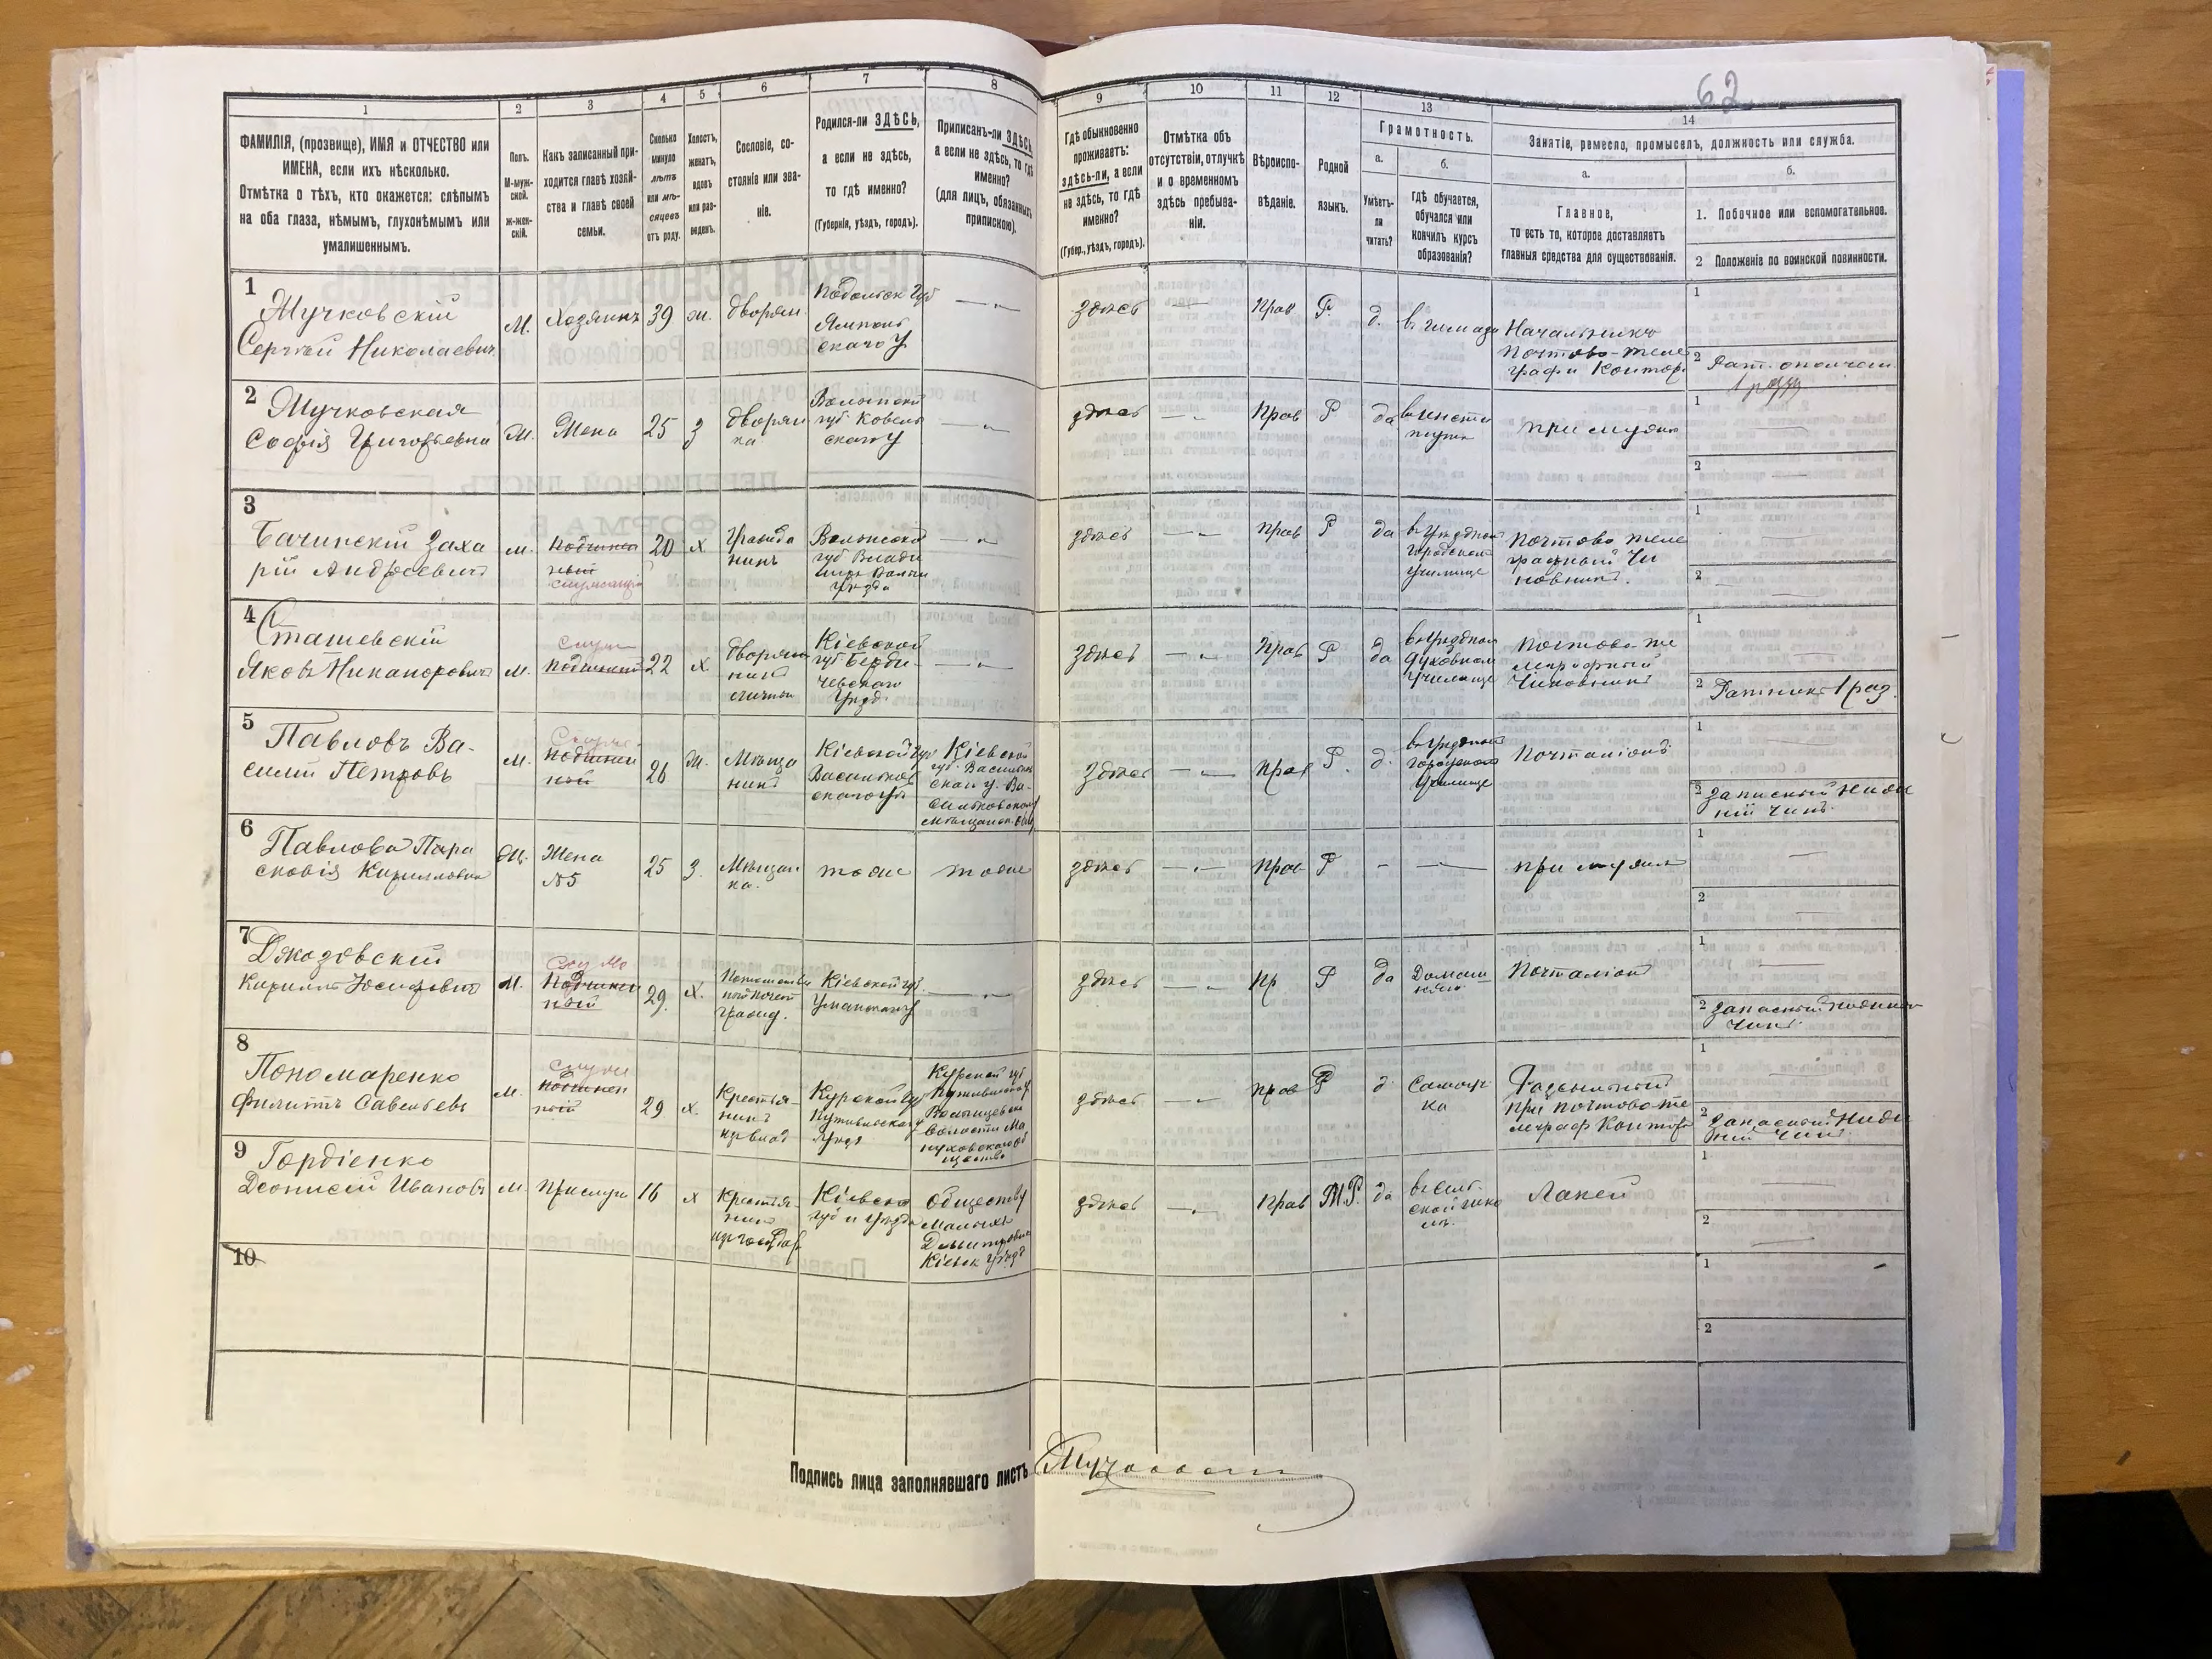 62
1
2
3
4
5
6
7
8
9
10
11
12
13
14
ФАМИЛІЯ, (прозвище), ИМЯ и ОТЧЕСТВО или
ИМЕНА, если ихъ нѣсколько.
Отмѣтка о тѣхъ, кто окажется: слѣпымъ
на оба глаза, нѣмымъ, глухонѣмымъ или
умалишеннымъ.
Полъ.
М-муж-
ской.
ж-жен-
скій.
Какъ записанный при-
ходится главѣ хозяй-
ства и главѣ своей
семьи.
Сколько
минуло
лѣтъ
или мѣ-
сяцевъ
отъ роду.
Холостъ,
женатъ,
вдовъ
или раз-
веденъ.
Сословіе, со-
стояніе или зва-
ніе.
Родился-ли ЗДѢСЬ,
а если не здѣсь,
то гдѣ именно?
(Губернія, уѣздъ, городъ).
Приписанъ-ли ЗДѢСЬ,
а если не здѣсь, то гдѣ
именно?
(для лицъ, обязанныхъ
припискою).
Гдѣ обыкновенно
проживаетъ:
здѣсь-ли, а если
не здѣсь, то гдѣ
именно?
(Губер., уѣздъ, городъ).
Отмѣтка объ
отсутствіи, отлучкѣ
и о временномъ
здѣсь пребыва-
ніи.
Вѣроиспо-
вѣданіе.
Родной
языкъ.
Грамотность.
а.
Умѣетъ-
ли
читать?
б.
Гдѣ обучается,
обучался или
кончилъ курсъ
образованія?
Занятіе, ремесло, промыселъ, должность или служба.
а.
Главное,
то есть то, которое доставляетъ
главныя средства для существованія.
б.
1. Побочное или вспомогательное.
2 Положеніе по воинской повинности.
1
Мучковскій
Сергѣй Николаевич
М.
Хозяинъ
39
ж.
дворян
Подольск Губ
Ямполь
скаго У
здѣсь
Прав
Р.
д.
в гимназ
Начальникъ
Почтово-теле
графн Контор
1
2 Рат. ополчен.
1 разр
2
Мучковская
Софія Григорьевна
Ж.
Жена
25
З
дворян
ка
Волынск
губ Ковель
скаго У
здѣсь
Прав
Р
да
в инсти
тутѣ
при мужѣ
1
2
3
Бачинскій Заха
рій Андреевичъ
м.
Подчинен
ный
служащій
20
х
Гражда
нинъ
Волынской
губ Влади
міръ Волын
Уѣзда
здѣсь
Прав
Р
да
в Уѣздном
городском
училище
Почтово теле
графный Чи
новникъ.
1
2
4
Сташевскій
Яковъ Никаноровичъ
м.
служ
Подчинен
22
х.
дворян
нинъ
личный
Кіевской
губ Берди-
чевскаго
Уѣзд
здѣсь
Прав
Р
да
в Уѣздном
духовном
училище
Почтово те
леграфный
Чиновникъ
1
2 Ратникъ 1 раз.
5
Павловъ Ва-
силій Петровъ
М.
Служ.
подчинен
ный
26
ж.
Мѣща
нинъ
Кіевской губ
Васильков
скаго У
Кіевской
губ. Васильк
скаго У. Ва-
сильковском
мѣщанск.
здѣсь
Прав
Р.
д.
в Уѣздном
городском
училище
Почталіонъ
1
2 запасный нижн
ній чинъ.
6
Павлова Пара
скевія Кирилловна
Ж.
Жена
№5
25
З.
Мѣщан
ка.
тоже
тоже
здѣсь
Прав
Р
при мужѣ
1
2
7
Кириллъ Іосифовичъ
М.
Служ
Подчинен
ный
29.
х.
Потомствен
ный почет
гражд.
Кіевской губ.
Уманскаго У
здѣсь
Пр
Р
да
Домаш
нее
Почталіон
1
2 Запасный нижній
чинъ.
8
Пономаренко
Филиппъ Савельевъ
М.
служ
подчинен
ный
29
х.
Крестья-
нинъ
Курской губ
Путивльскаго
Уѣзда
Курской губ
Путивльск У.
волости
здѣсь
Прав
Р
д.
Самоуч
ка
Разсыльный
при почтово-те
леграф Контор
1
2 Запасный Нижн
ній чинъ.
9
Гордіенко
Деонисій Ивановъ
М
Прислуга
16
х
Крестья-
нинъ
Кіевской
губ и Уѣзда
Обществу
Малыхъ
Дмитрович
Кіевск Уѣзд
здѣсь
Прав
М.Р.
да
в сель
ской шко
лѣ.
Лакей
1
2
10
1
2
Подпись лица заполнявшаго листъ